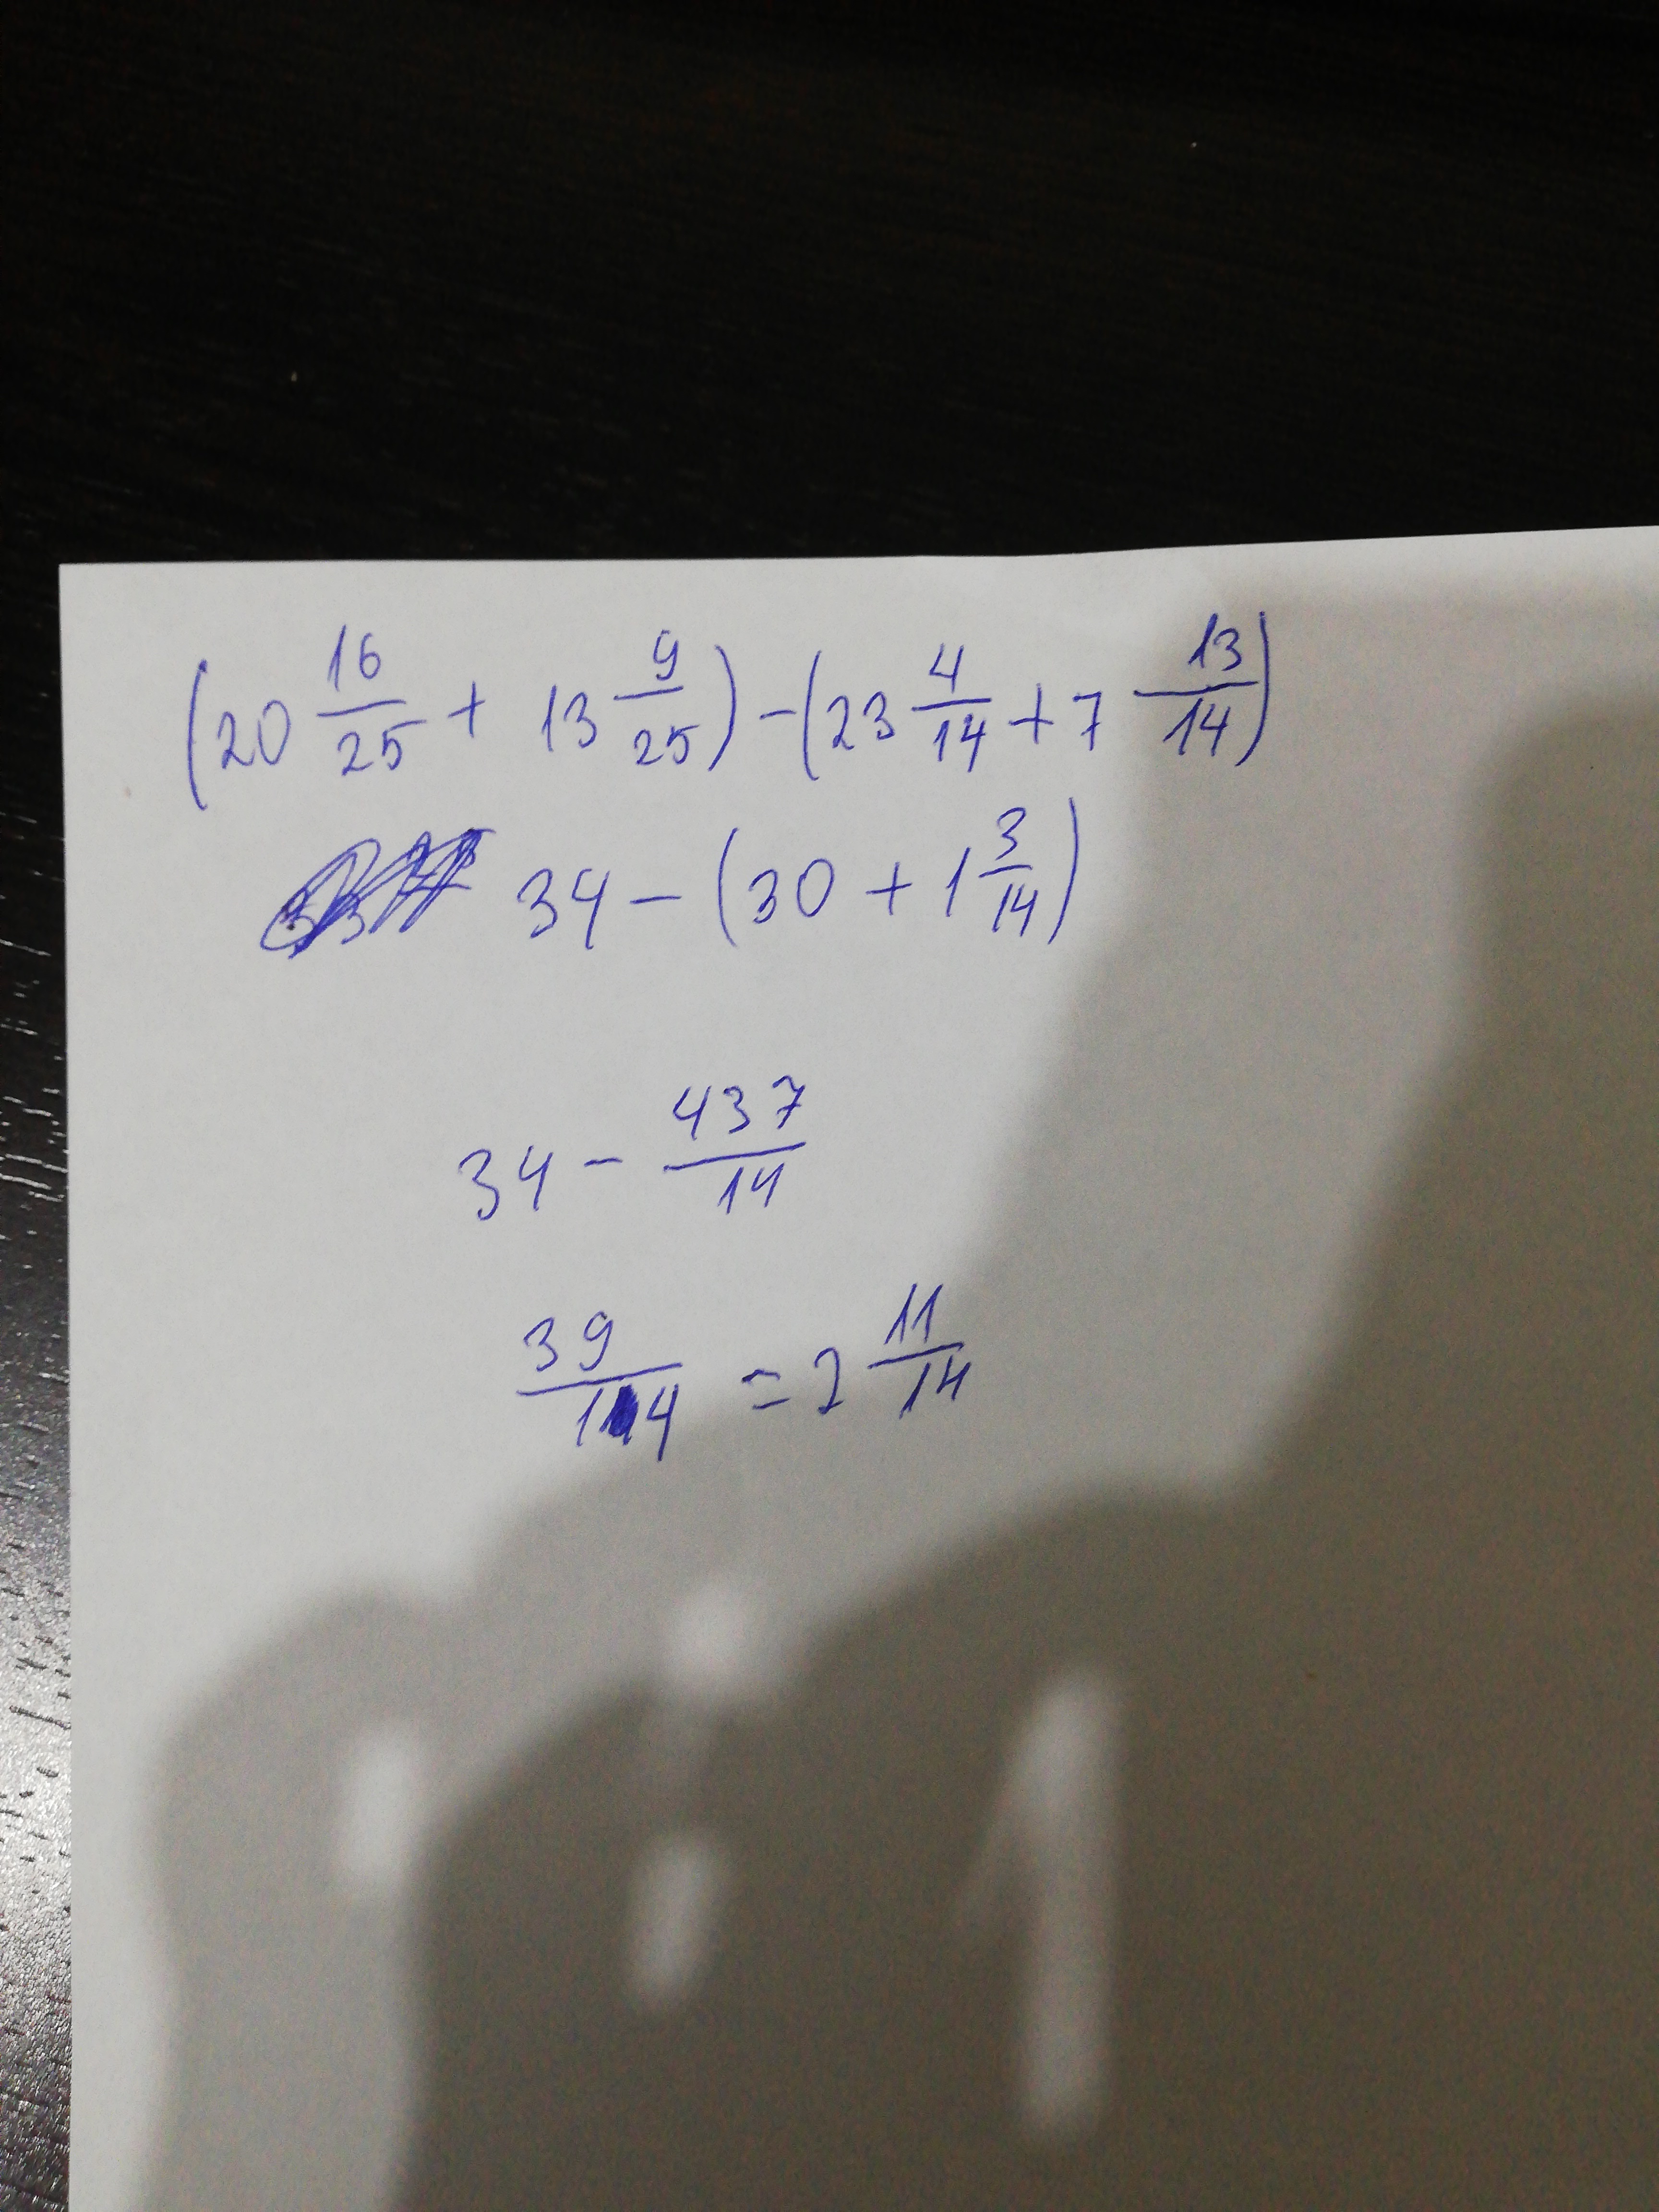 (20 16/25 + 13 9/25) - (23 4/14 + 7 13/14)
34 - (30 + 1 3/14)
34 - 437/14
39/14 = 2 11/14